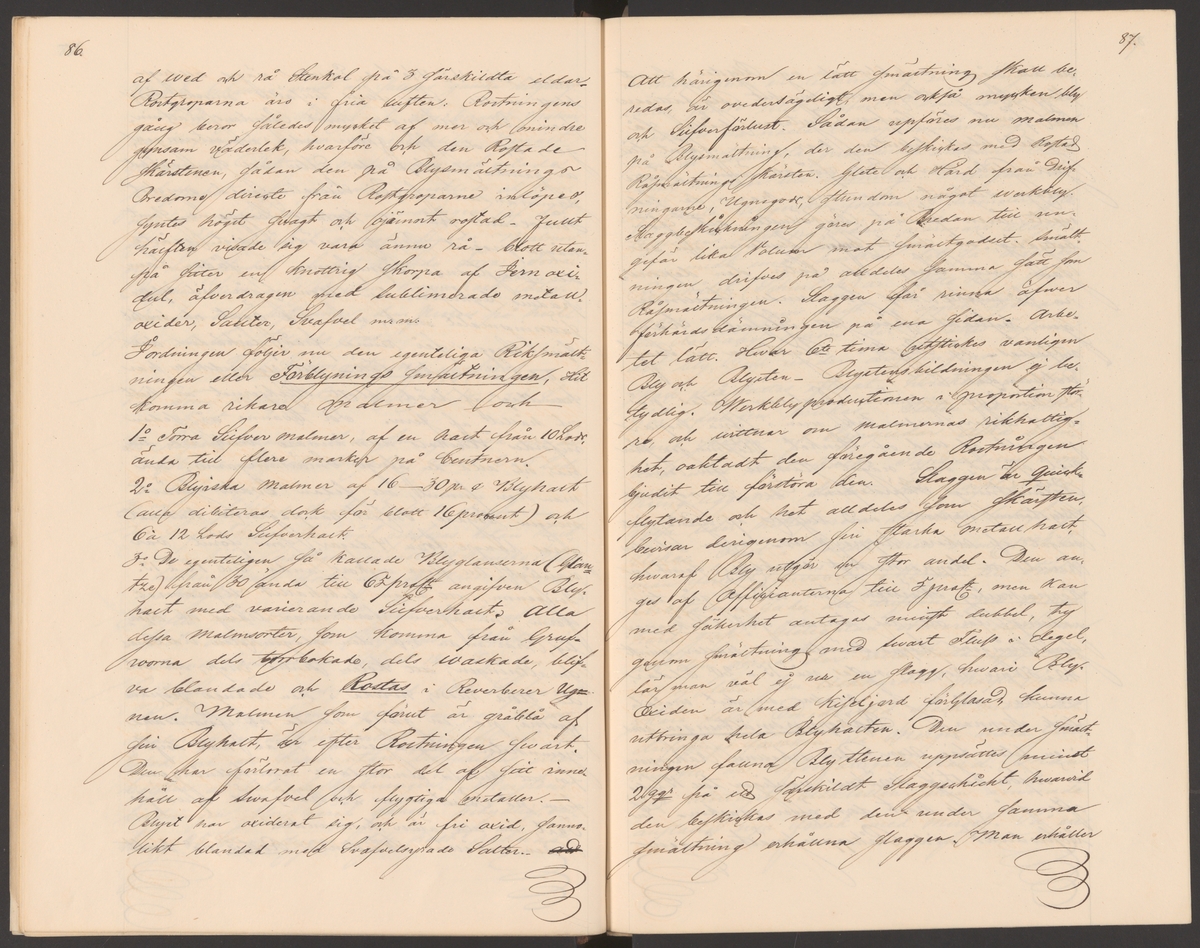 86.
af wed och rå Stenkol på 3 särskildta eldar.
Rostgroparna äro i fria luften. Rostningens
gång beror således mycket af mer och mindre
gynsam väderlek, hvarföre och den Rostade
Skärstenen, sådan den på Blysmältnings
Bredorne directe från Rostgroparne inlöpes,
syntes högst svagt och ojämnt rostad – Fullt
hälften visade sig vara ännu rå – blott utan-
på sitter en knottrig skorpa af Jernoxi-
dul, äfverdragen med sublimerade metall
oxider, Salter, Svafvel m.m.
I ordningen följer nu den egenteliga Riksmält-
ningen eller Förblynings smältningen, Hit
komma rikare malmer och
1o Torra Silfver malmer, af en halt från 10 Lod,
ända till flere marker på Centnern.
2o Blyiska malmer af 16 – 30 pr c Blyhalt
(ala debiteras dock för blott 16 procent) och
6 à 12 Lods Silfverhalt.
3o De egentligen så kallade Blyglanserna (Glan-
tze) från 30 ända till 65 pracft angifven Bly-
halt med varierande Silfverhalt; Alla
dessa malmsorter, som komma från Gruf-
vorna dels torrbokade, dels waskade, blif-
va blandade och Rostas i Reverberer Ug-
nen. Malmen som förut är gråblå af
sin Blyhalt, är efter Rostningen swart.
Den har förlorat en stor del af sitt inne-
håll af Swafvel och flygtiga metaller. –
Blyet har oxiderat sig, och är fri oxid, sanno-
likt blandad med Svafvelsyrade Salter. –
87.
Att härigenom en lätt smältning skall be-
redas, är ovedersägeligt, men också mycken bly
och Silfverförlust. Sådan uppföres nu malmen
på Blysmältning, der den beskickas med Rostad
Råsmältnings skärsten. Glete och Härd från Drif-
ningarne, Ugnsgods, stundom något werkbly.
Slaggbeskickningen göres på Bredan till un-
gefär lika Volum mot smältgodset. Smält-
ningen drifves på alldeles samma sätt som
Råsmältningen. Slaggen får rinna äfwer
förhärdsdämningen på ena sidan. Arbe-
tet lätt. Hwar 6te tima afstickes vanligen
Bly och Blysten – Blystensbildningen ej be-
tydlig. Werkblyproductionen i proportion stör-
re, och vittnar om malmernas rikhaltig-
het, oaktadt den föregående Rostningen
bjudit till förstöra den. Slaggen är qvick-
flytande och het alldeles som Skärsten,
bevisar derigenom sin starka metallhalt,
hwaraf Bly utgör en stor andel. Den an-
ges af Affficanterna till 5 pracft, men kan
med säkerhet antagas minst dubbel, ty
genom smältning med swart Fluss i degel,
lär man väl ej ur en slagg, hwari Bly-
Oxiden är med kiseljord förglasad, kunna
utbringa hela Blyhalten. Den under smält-
ningen fallna Blystenen uppsättes minst
2 ggr på ett särskildt Slaggskickt, hwarvid
den beskickas med den under samma
smältning erhållna slaggen. Man erhåller